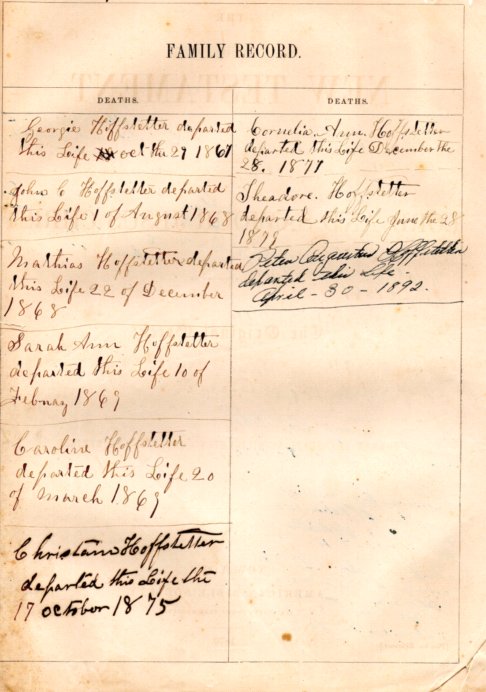 FAMILY RECORD.
DEATHS.
Georgie Hoffstetter departed
this Life oct the 29 1867
John C Hoffstetter departed
this Life 1 of August 1868
Mathias Hoffstetter departed
this Life 22 of December
1868
Sarah Ann Hoffstetter
departed this Life 10 of
Febuary 1869
Caroline Hoffstetter
departed this Life 20
of March 1869
Christian Hoffstetter
departed this Life the
17 october 1875
DEATHS.
Cornelia Ann Hoffstetter
departed this Life December the
28. 1877
Theadore. Hoffstetter
departed this Life June the 28
1879
Peter Augustus Hoffstetter
departed this Life -
April - 30 - 1892.